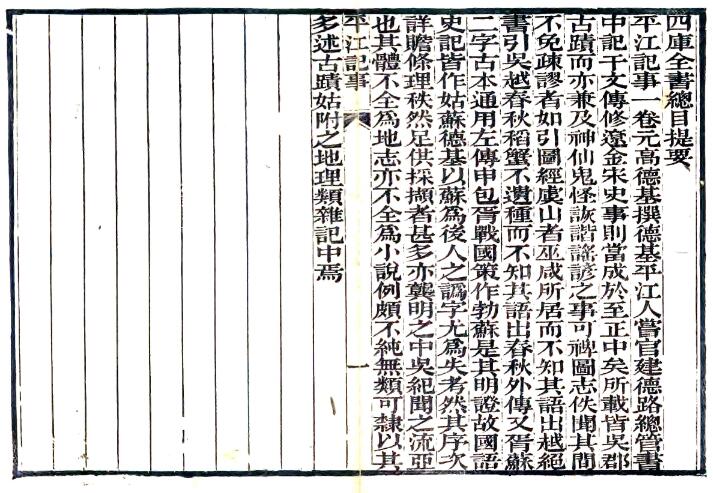 四庫全書總目提要
平江記事一卷元高德基撰德基平江人嘗官建德路總管書
中記干文傳修遼金宋史事則當成於至正中矣所載皆吳郡
古蹟而亦兼及神仙鬼怪詼諧謠諺之事可裨圖志佚聞其間
不免疎謬者如引圖經虞山者巫咸所居而不知其語出越絕
書引吳越春秋稻蟹不遺種而不知其語出春秋外傳又胥蘇
二字古本通用左傳申包胥戰國策作勃蘇是其明證故國語
史記皆作姑蘇德基以蘇為後人之譌字尤為失考然其序次
詳贍條理秩然足供採擷者甚多亦龔明之中吳紀聞之流亞
也其體不全為地志亦不全為小說例頗不純無類可隸以其
平江記事 一
多述古蹟姑附之地理類雜記中焉